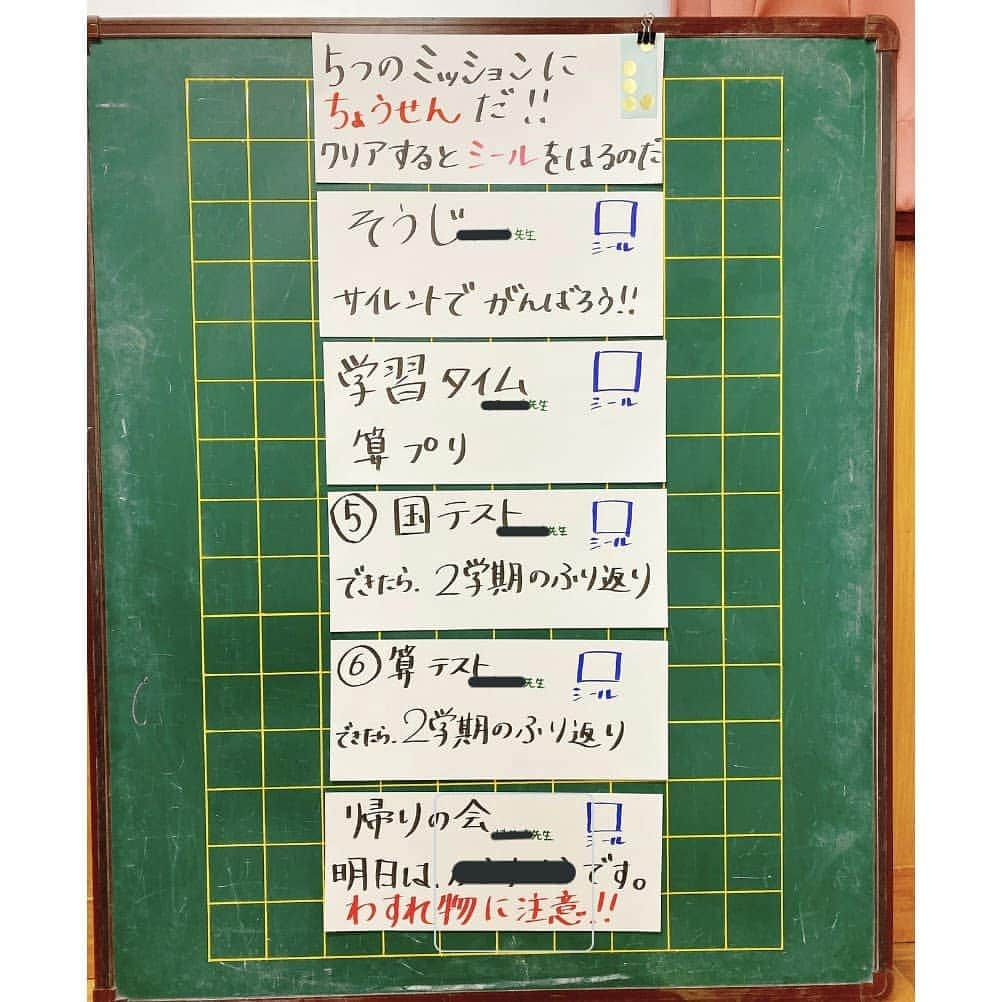 5つのミッションに
ちょうせんだ!!
クリアするとシールをはるのだ
そうじ 先生
シール
サイレントでがんばろう!!
学習タイム 先生
シール
算プリ
⑤国テスト 先生
シール
できたら、2学期のふり返り
⑥算テスト 先生
シール
できたら、2学期のふり返り
帰りの会 先生
シール
明日は、 です。
わすれ物に注意!!